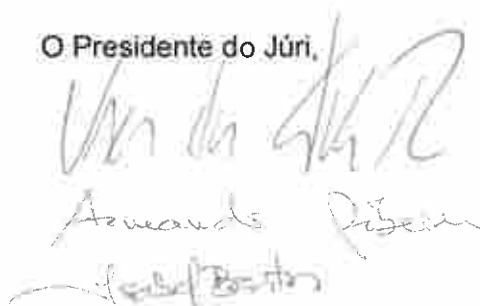 O Presidente do Júri,
Armando Ribeiro
Isabel Bastos